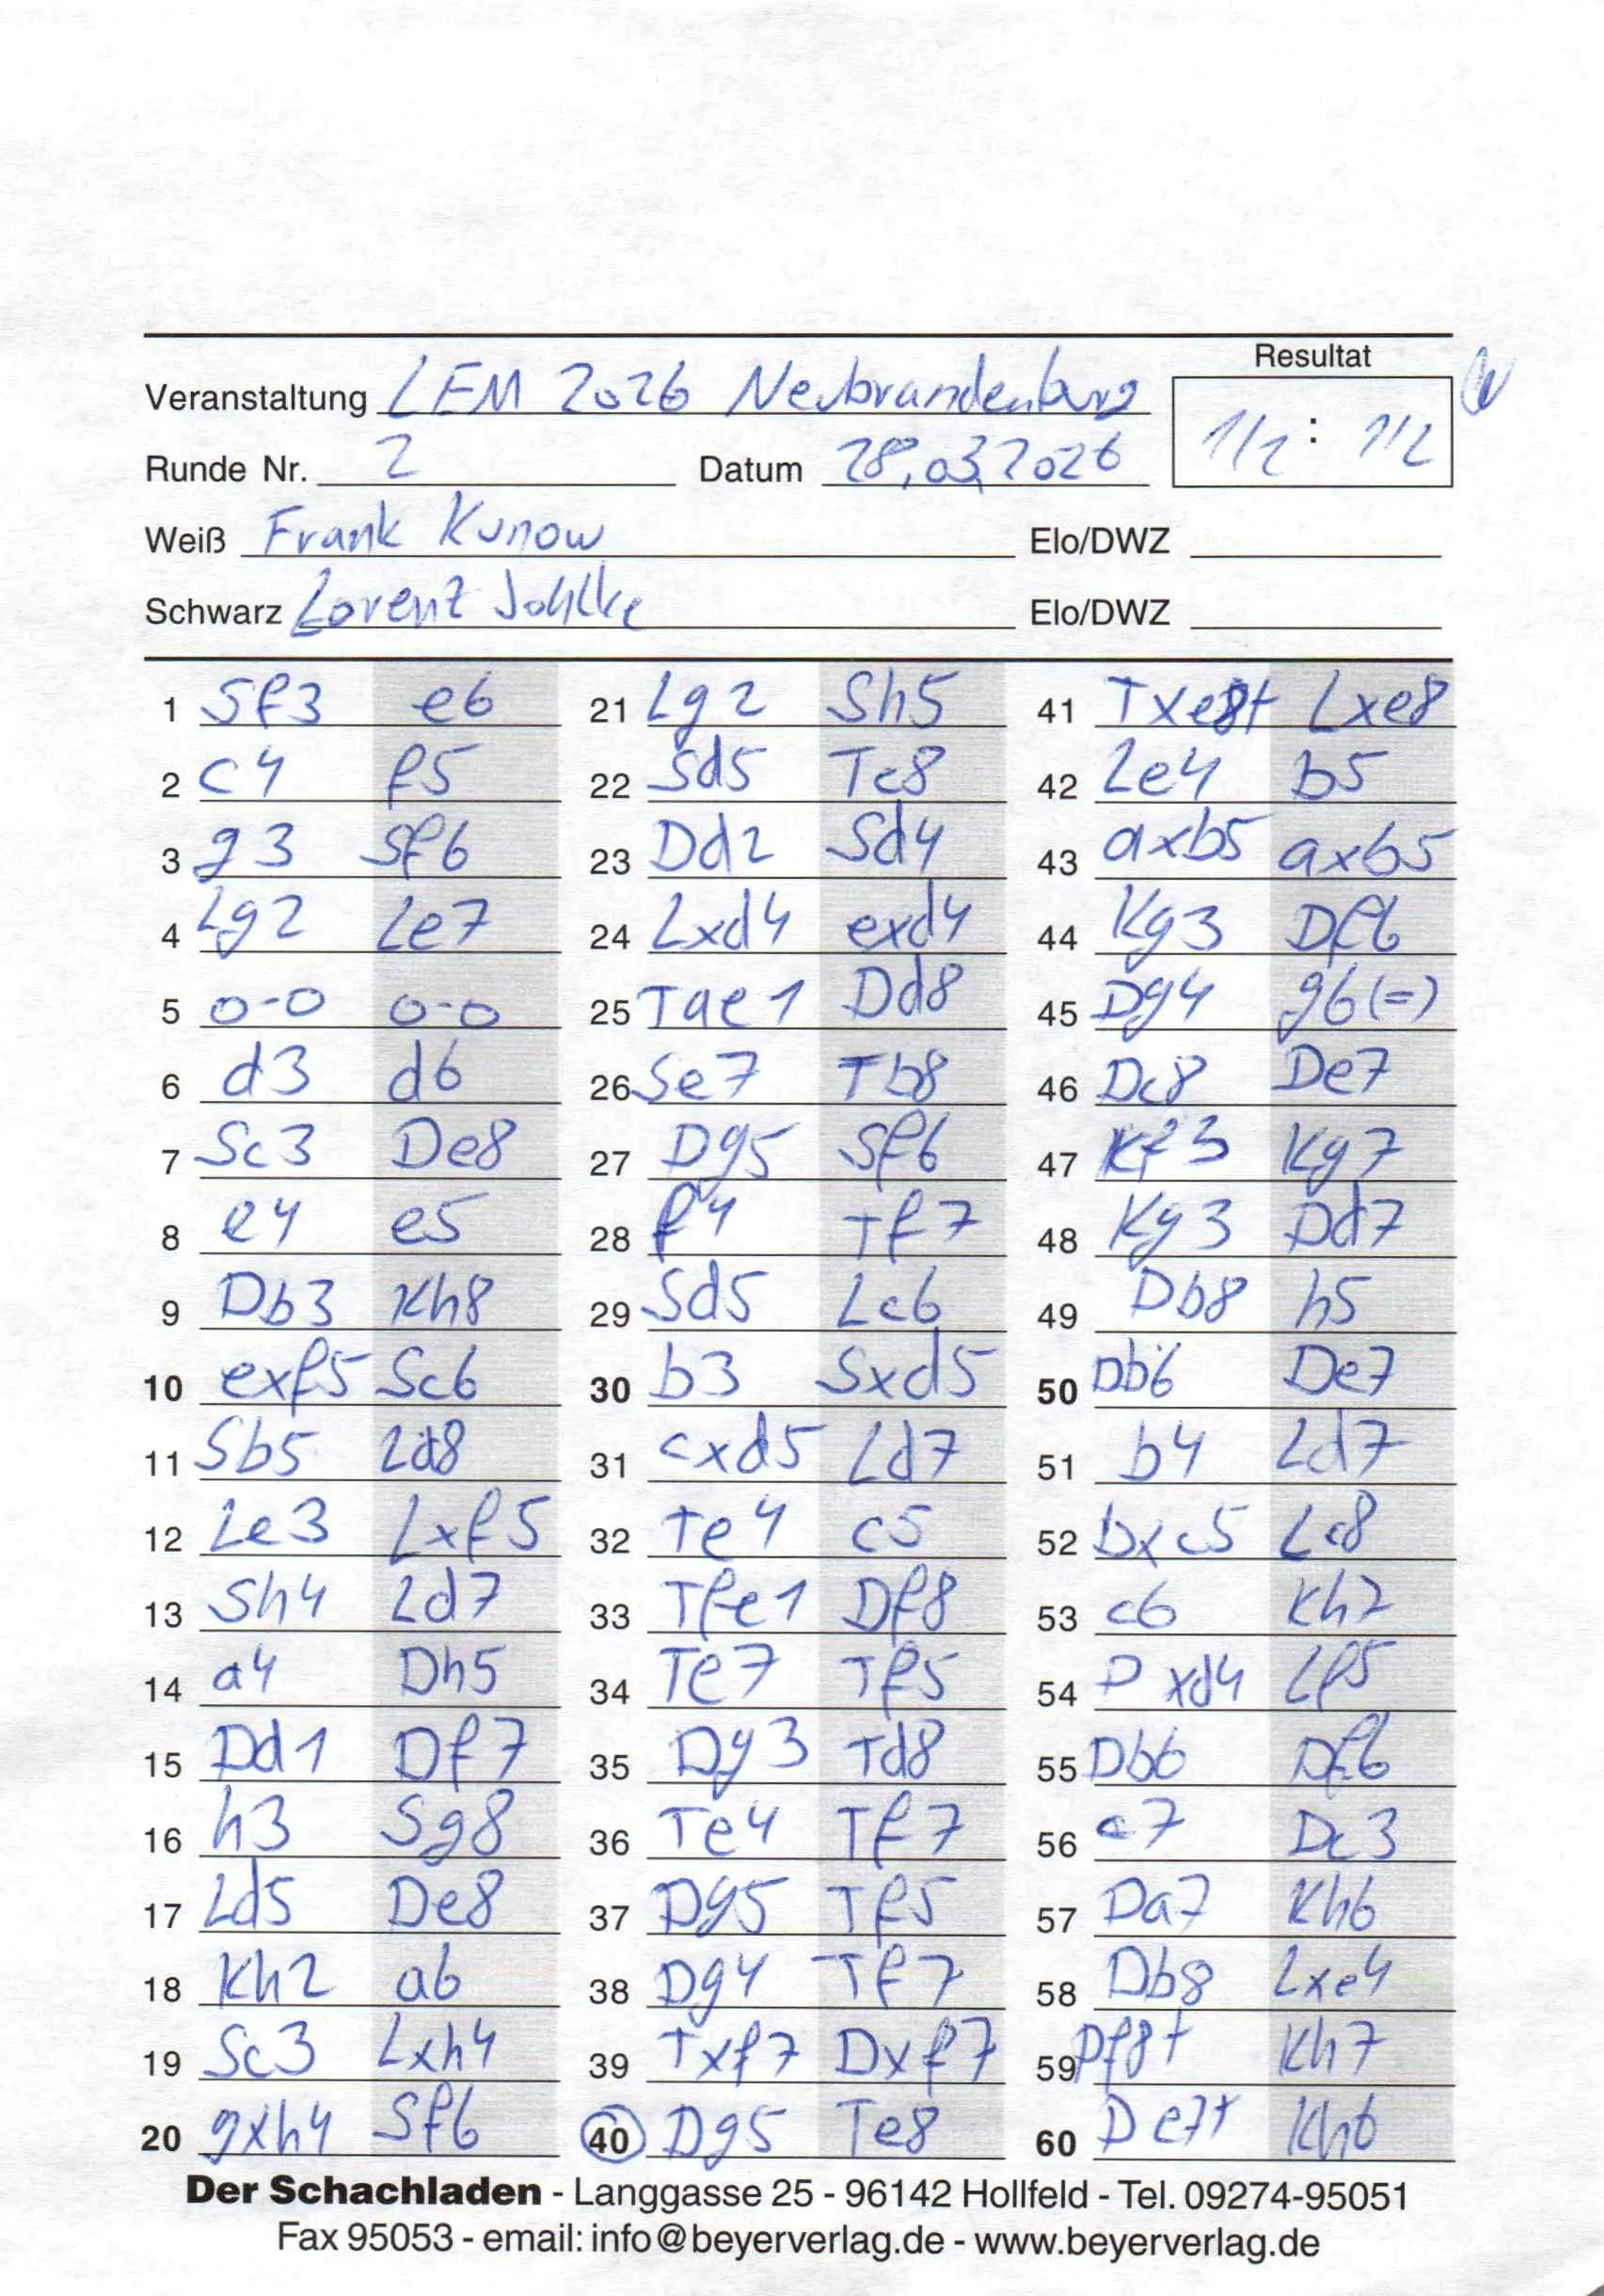 Resultat
Veranstaltung LEM 2026 Neubrandenburg
1/2 : 1/2
Runde Nr. 2 Datum 28.03.2026
Weiß Frank Kunow Elo/DWZ
Schwarz Lorenz Johlke Elo/DWZ
1 Sf3 e6 21 Lg2 Sh5 41 Txe8+ Lxe8
2 c4 f5 22 Sd5 Tc8 42 Le4 b5
3 g3 Sf6 23 Dd2 Sd4 43 axb5 axb5
4 Lg2 Le7 24 Lxd4 exd4 44 Kg3 Df6
5 0-0 0-0 25 Tae1 Dd8 45 Dg4 g6(=)
6 d3 d6 26 Se7 Tb8 46 Dc8 De7
7 Sc3 De8 27 Dg5 Sf6 47 Kf3 Kg7
8 e4 e5 28 f4 Tf7 48 Kg3 Dd7
9 Db3 Kh8 29 Sd5 Lc6 49 Db8 h5
10 exf5 Sc6 30 b3 Sxd5 50 Db6 De7
11 Sb5 Ld8 31 cxd5 Ld7 51 b4 Ld7
12 Le3 Lxf5 32 Te4 c5 52 bxc5 Lc8
13 Sh4 Ld7 33 Tfe1 Df8 53 c6 Kh7
14 a4 Dh5 34 Te7 Tf5 54 Dxd4 Lf5
15 Dd1 Df7 35 Dg3 Td8 55 Db6 Df6
16 h3 Sg8 36 Te4 Tf7 56 c7 Dc3
17 Ld5 De8 37 Dg5 Tf5 57 Da7 Kh6
18 Kh2 a6 38 Dg4 Tf7 58 Db8 Lxe4
19 Sc3 Lxh4 39 Txf7 Dxf7 59 Df8+ Kh7
20 gxh4 Sf6 40 Dg5 Te8 60 De7+ Kh6
Der Schachladen - Langgasse 25 - 96142 Hollfeld - Tel. 09274-95051
Fax 95053 - email: info@beyerverlag.de - www.beyerverlag.de